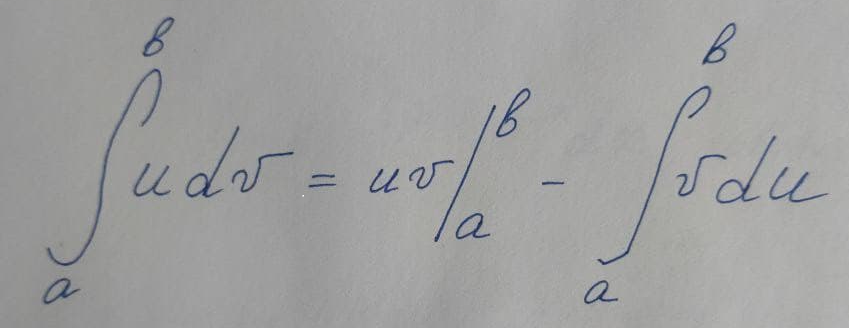 ∫_a^b u dv = uv |_a^b - ∫_a^b v du